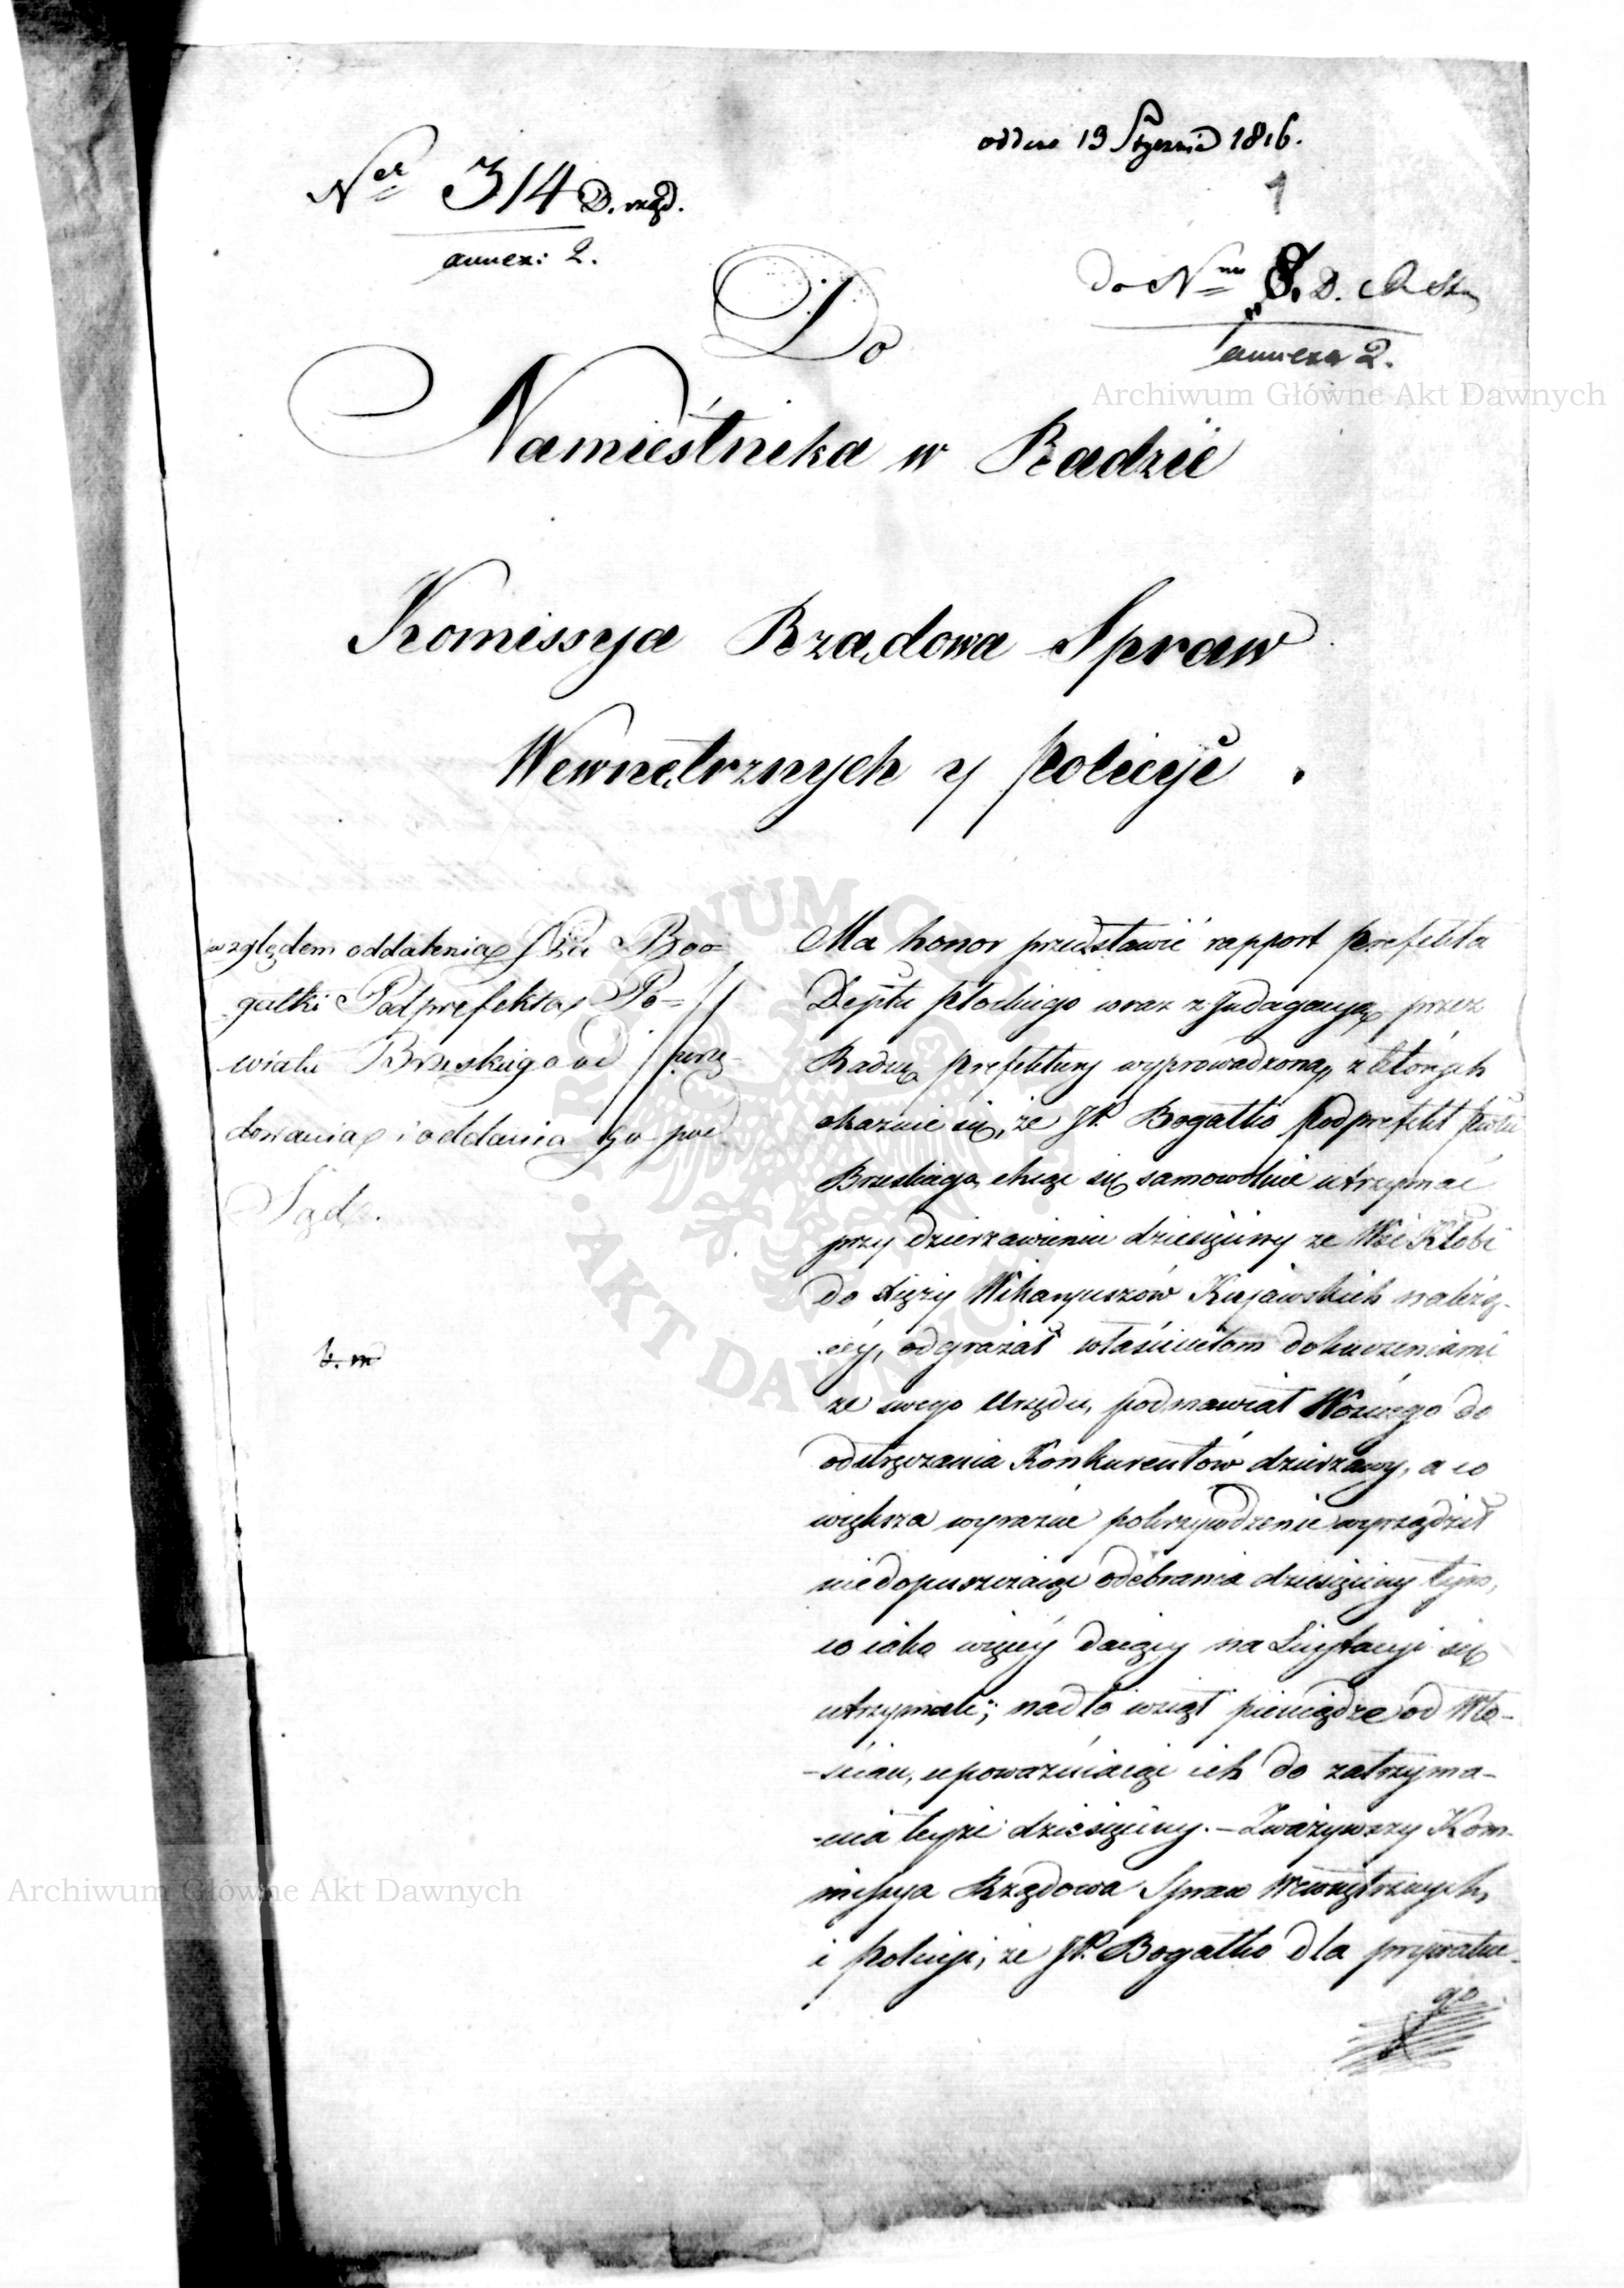 oddano 13 Stycznia 1816.
1
Ner 314 D. rząd.
annex: 2.
do Nru 8. D.
annexa 2.
Do
Namieśtnika w Radzie
Kommissya Rządowa Spraw
Wewnętrznych y Policyi.
względem oddalenia JPa Bo=
gatki Podprefekta Po=
wiatu Brzeskiego od urzę-
dowania i oddania go pod
Sąd.
Ma honor przedstawić rapport Prefekta
Deptu Płockiego wraz z Indagacyą przez
Radzcę Prefektury wyprowadzoną, z których
okazuie się, że JP. Bogatko Podprefekt Pwtu
Brzeskiego, chcąc się samowolnie utrzymać
przy dzierzawieniu dziesięciny ze Wsi Kłobi
do Xięży Wikaryuszów Kujawskich należą-
céy, odgrażał właścicielom dokuczeniami
ze swego Urzędu, podmawiał Woźnego do
odstręczania Konkurentów dzierzawy, a co
większa wyraźne pokrzywdzenie wyrządził
niedopuszczaiąc odebrania dziesięciny tym,
co iako więcéy daiący na Licytacyi się
utrzymali; nadto wziął pieniądze od Wło-
-ścian, upoważniaiąc ich do zatrzyma-
-nia teyże dziesięciny. – Zważywszy Kom-
missya Rządowa Spraw Wewnętrznych
i Policyi, że JP. Bogatko dla prywatne-
go
Archiwum Główne Akt Dawnych
Archiwum Główne Akt Dawnych
ARCHIWUM GŁÓWNE AKT DAWNYCH